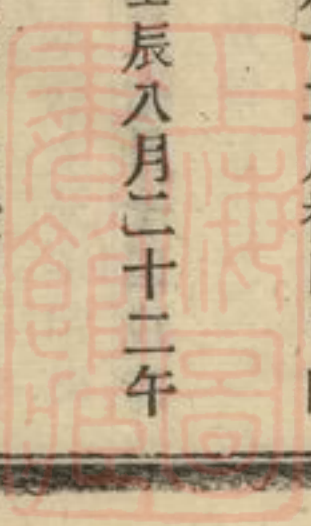 辰八月二十二午
上海圖書館藏